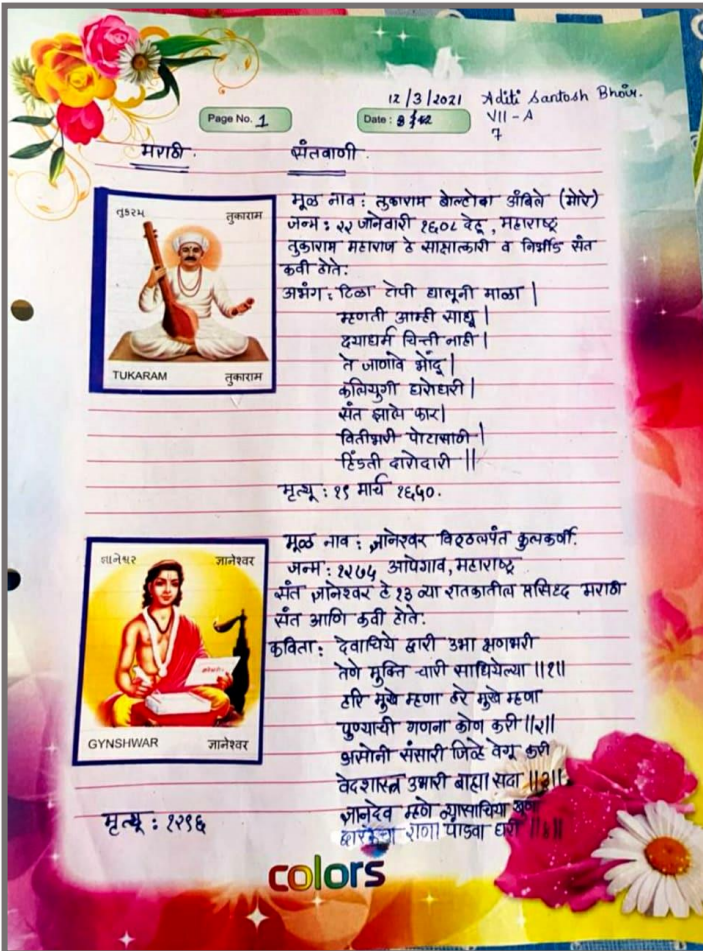 12/3/2021 Aditi Santosh Bhoir.
Page No. 1 Date: VII - A
7
मराठी. संतवाणी.
मूळ नाव : तुकाराम बोल्होबा अंबिले (मोरे)
जन्म : २२ जानेवारी १६०८ देहू, महाराष्ट्र
तुकाराम महाराज हे साक्षात्कारी व निर्भीड संत
कवी होते.
अभंग : टिळा टोपी घालूनी माळा |
म्हणती आम्ही साधू |
दयाधर्म चित्ती नाही |
ते जाणावे भोंदू |
कलियुगी घरोघरी |
संत झाले फार |
वितीभरी पोटासाठी |
हिंडती दारोदारी ||
मृत्यू : १९ मार्च १६५०.
तुकाराम
TUKARAM तुकाराम
मूळ नाव : ज्ञानेश्वर विठ्ठलपंत कुलकर्णी.
जन्म : १२७५ आपेगाव, महाराष्ट्र
संत ज्ञानेश्वर हे १३ व्या शतकातील प्रसिद्ध मराठी
संत आणि कवी होते.
कविता : देवाचिये द्वारी उभा क्षणभरी
तेणे मुक्ति चारी साधियेल्या ||१||
हरि मुखे म्हणा हरे मुखे म्हणा
पुण्याची गणना कोण करी ||२||
असोनी संसारी जिव्हे वेगू करी
वेदशास्त्र उभारी बाह्या सदा ||३||
ज्ञानदेव म्हणे व्यासाचिया खुणा
द्वारकेचा राणा पांडवा घरी ||४||
मृत्यू : १२९६
ज्ञानेश्वर
GYNSHWAR ज्ञानेश्वर
colors